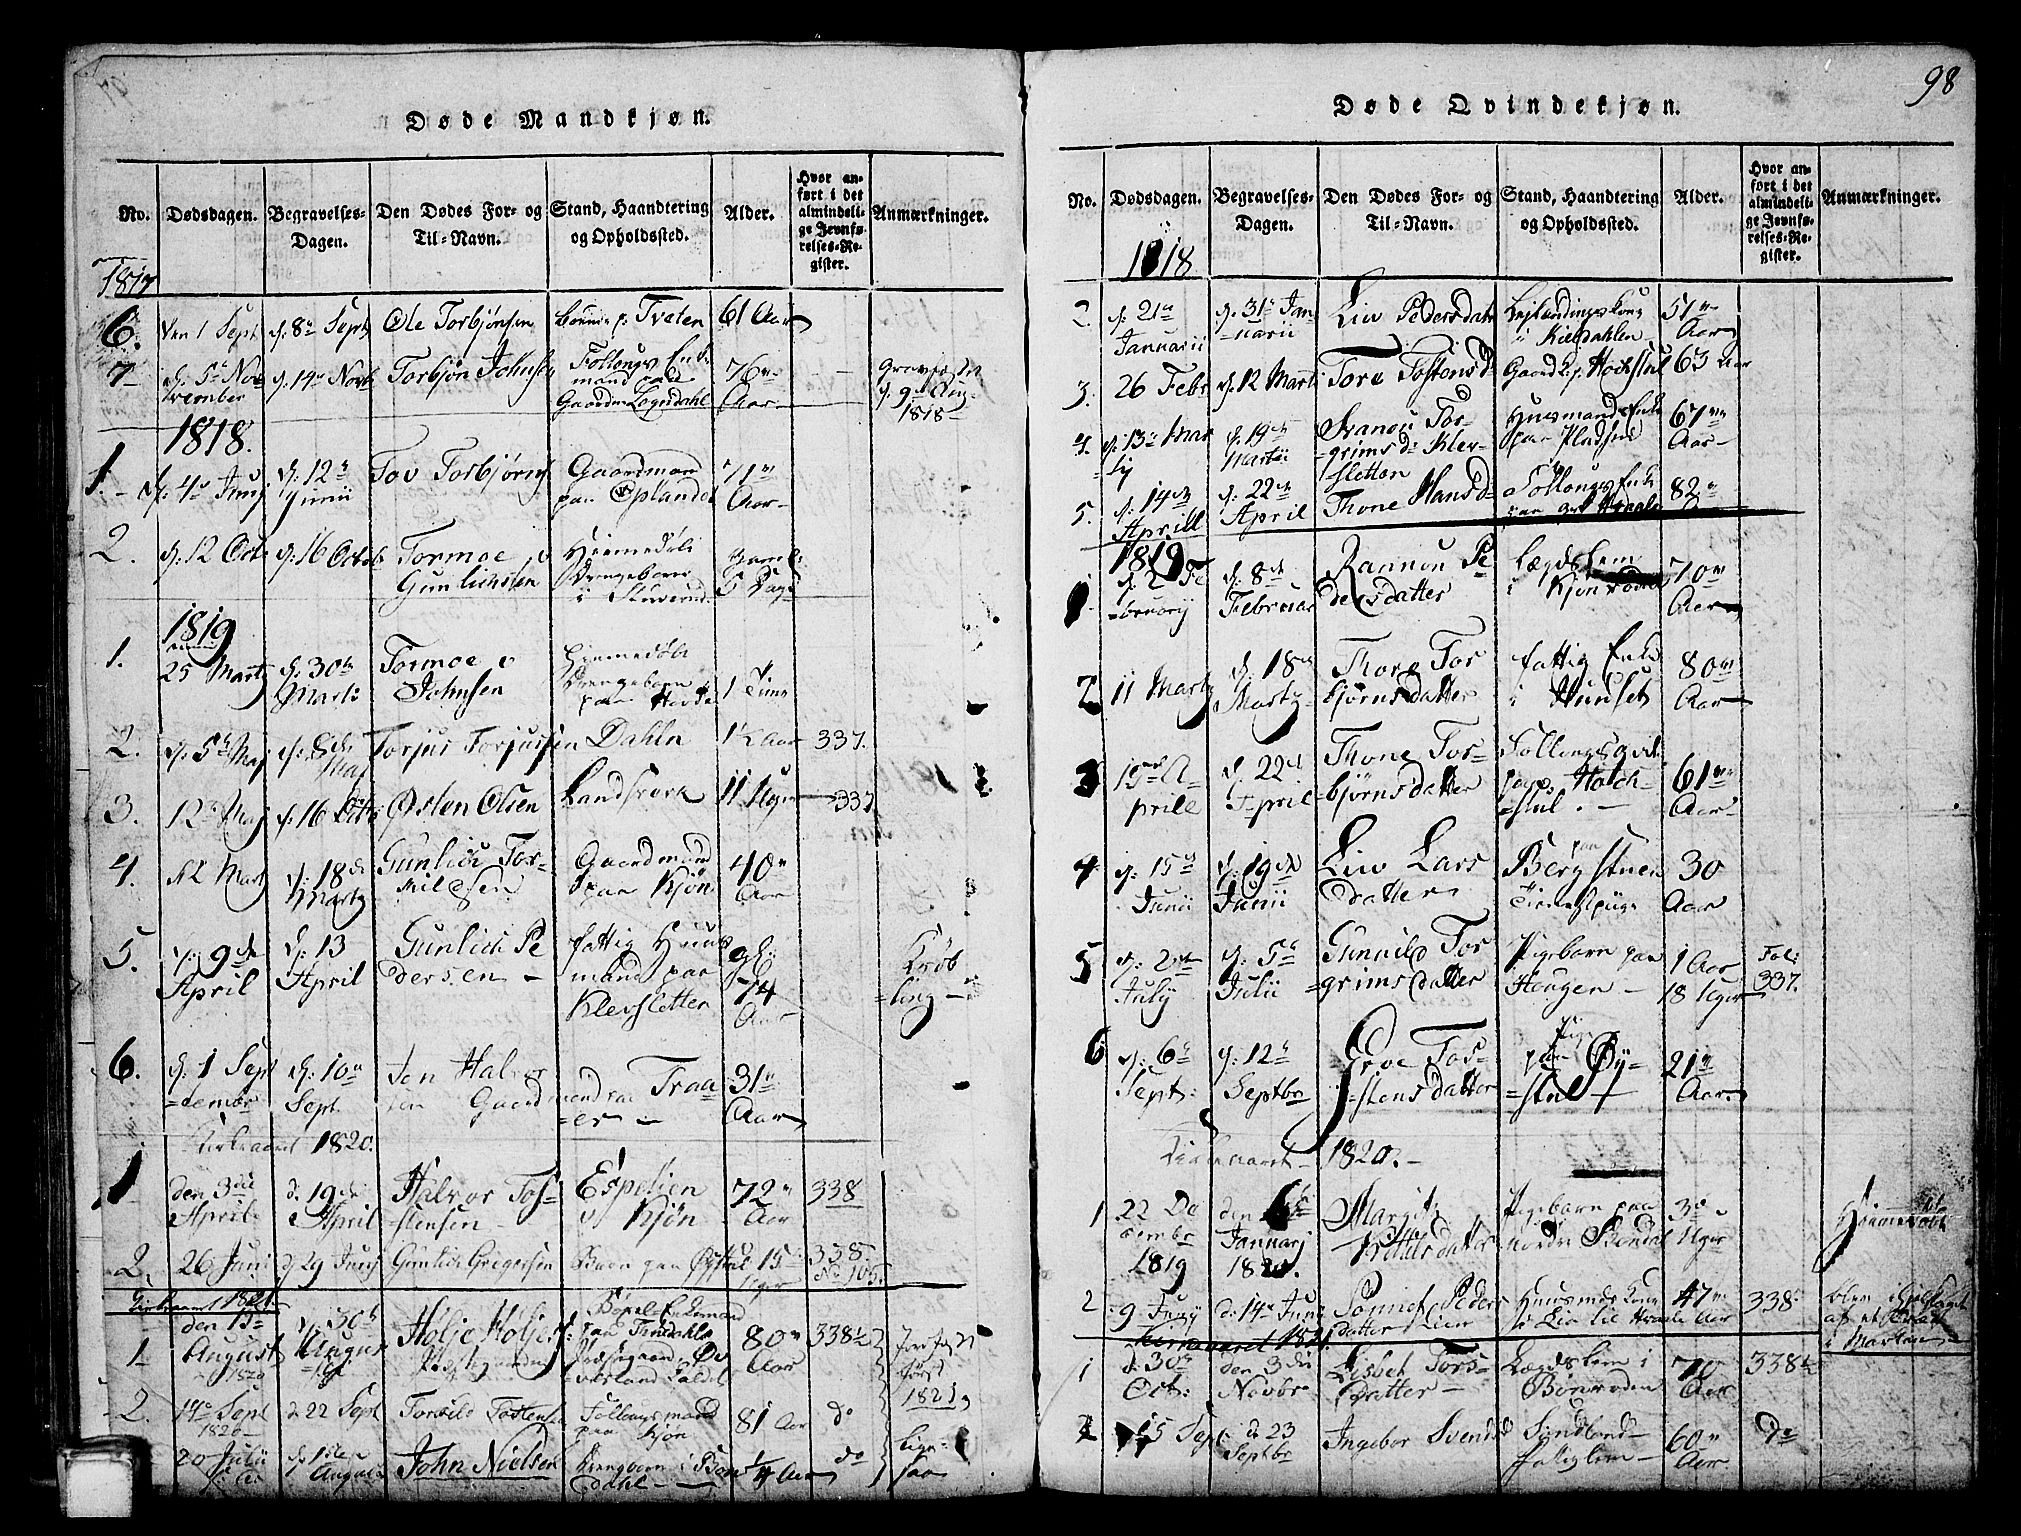 98
Døde Mandkjøn.
No.
Dødsdagen.
Begravelses-
Dagen.
Den Dødes For- og
Til-Navn.
Stand, Haandtering
og Opholdssted.
Alder.
Hvor an-
ført i det
almindeli-
ge Jevnfø-
relses-Re-
gister.
Anmærkninger.
1817
6. Den 1 Sept d. 8de Sept Ole Torbjönsen paa Tveten 61 Aar
7 d. 5te No-
vember d. 14de Novb Torbjön Johnsen Follougs Enke-
mand paa
Gaarden Logsdahl 76
Aar Gravfæstet
d. 9de Aug
1818
1818.
1. d. 4de Junj d. 12te
Junii Tov Torbjörns Gaardmand
paa Oplandet 71
Aar
2. d. 12 Octr d. 16 Octob Tormoe
Gunlichsen Hiemmedöbt
Drengebarn
i Stuverud 5 Dage
1819
1. 25 Marty d. 30te
Marti Tormoe
Johnsen Hiemmedöbt
Drengebarn
paa 1 Time
2. d. 5te Maj d. 8de
Maj Torjus Torjussen Dahln 1½ Aar 337.
3. 12 Maj d. 16 Østen Olsen Landsverk 11 Uger 337
4. 12 Mart d. 18de
Marty Gunlich Tor-
kildsen Gaardmand
paa Kjön 40
Aar
5. d. 9de
April d. 13
April Gunlich Pe
dersen fattig Huus
mand paa
Klevsletter 74
Aar Kröb
ling
6. d. 1 Sept
tember d. 10de
Sept. Jon Halvor
sen Gaardmand paa Traa-
er 31
Aar
Kirkeaaret 1820.
1 den 3die
April d. 19de
April Halvor Tos-
stensen Espelien
v Kjön 72
Aar 338
2. 26 Juni d 29 Junij Gunlich Gregersen Barn paa Øystul 15
Uger 338.
No 105.
Kirkeaaret 1821.
1 den 13de
August
1820 d. 30te
August Hölje Höljes 80
Aar 338½
2. 14de Sept
1820 d. 22 Sept Torkild Tostens Follougsmand
paa Kjön 81 Aar do
20 Julii d. 1ste
August John Nielsen Drengebarn i Bön
dahl ¼ Aar do
först
1821
Døde Qvindekjøn.
No.
Dødsdagen.
Begravelses-
Dagen.
Den Dødes For- og
Til-Navn.
Stand, Haandtering
og Opholdssted.
Alder.
Hvor an-
ført i det
almindeli-
ge Jevnfø-
relses-Re-
gister.
Anmærkninger.
1818
2. d. 21de
Januarii d. 31te Jan-
uarii Liv Pedersdatr Leilendingskone
i Kilsdahlen 51
Aar
3. 26 Febr d. 12 Marti Tore Tostensd Gaardkp. Hochstul 63 Aar
4. d. 13de Mar
tij d. 19de
Martii Svanou Tor-
grimsd. Klev-
sletten Huusmands Enke
paa Pladsen 67
Aar
5. d. 14de
Aprill d. 22de
April Thone Hansd Follougs Enke 82
1819
1. d. 2 Fe
bruarij d. 8de
Februar Rannou Pe
dersdatter Lægdslem
i Kjön 70
Aar
2 11 Marty d. 18de
Marty Thore Tor
björnsdatter fattig Enke
i Hunset 80
Aar
3 19de A-
prill d. 22de
April Thone Tor-
björnsdatter Follougsqvi
paa Hoch-
stul. 61
Aar
4 d. 15de
Junii d. 19de
Junii Liv Lars
datter paa
Bergstuen
Tienestpige 30
Aar
5 d. 2den
July d. 5te
Julii Gunnild Tor
grimsdatter Pigebarn paa
Haugen 1 Aar
18 Uger Fol:
337.
6 d. 6te
Sept: d. 12te
Septbr Tos-
stensdatter Pige
paa Øy-
stul 21
Aar
Kirkeaaret 1820.
1 22 De
cembr
1819 den
Januarj
1820. Margit
Kittelsdatter Pigebarn paa
nordre Böndal 3
Uger Hiemmedöbt
2 9 Junij d. 14de Juni Pedersdatter Lien Huusmds Kone
Lien til 47
Aar 338
Kirkeaaret 1821.
1 d. 30te
Octr: den 3die
Novbr Lisbet Tors-
datter Lægdslem i
70
Aar 338½
2 15 Sept d 23
Septbr Ingebor Svendsd Sundland
60
Aar do